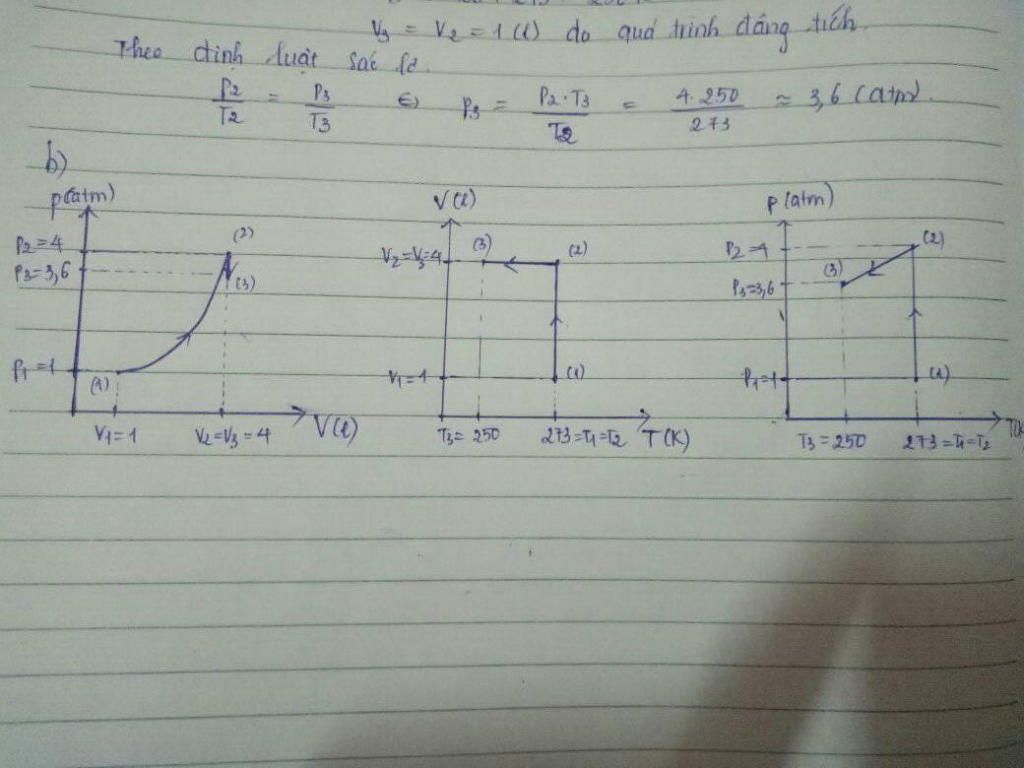 V₃ = V₂ = 1 (l) do quá trình đẳng tích.
Theo định luật sác lơ.
P₂/T₂ = P₃/T₃ ⇔ P₃ = P₂.T₃/T₂ = 4.250/273 ≈ 3,6 (atm).
b)
p(atm)
P₂=4
P₃=3,6
P₁=1
(2)
(3)
(1)
V₁=1
V₂=V₃=4
V(l)
V(l)
V₂=V₃=4
V₁=1
(3)
(2)
(1)
T₃=250
273=T₁=T₂
T(K)
P(atm)
P₂=4
P₃=3,6
P₁=1
(2)
(3)
(1)
T₃=250
273=T₁=T₂
T(K